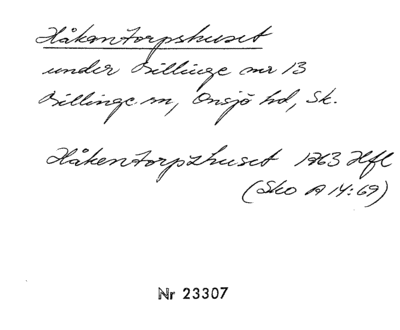 Håkentorpshuset
under Billinge nr 13
Billinge sn, Onsjö hd, Sk.
Håkentorpshuset 1763 Hfl
(Sko A 14:69)
Nr 23307